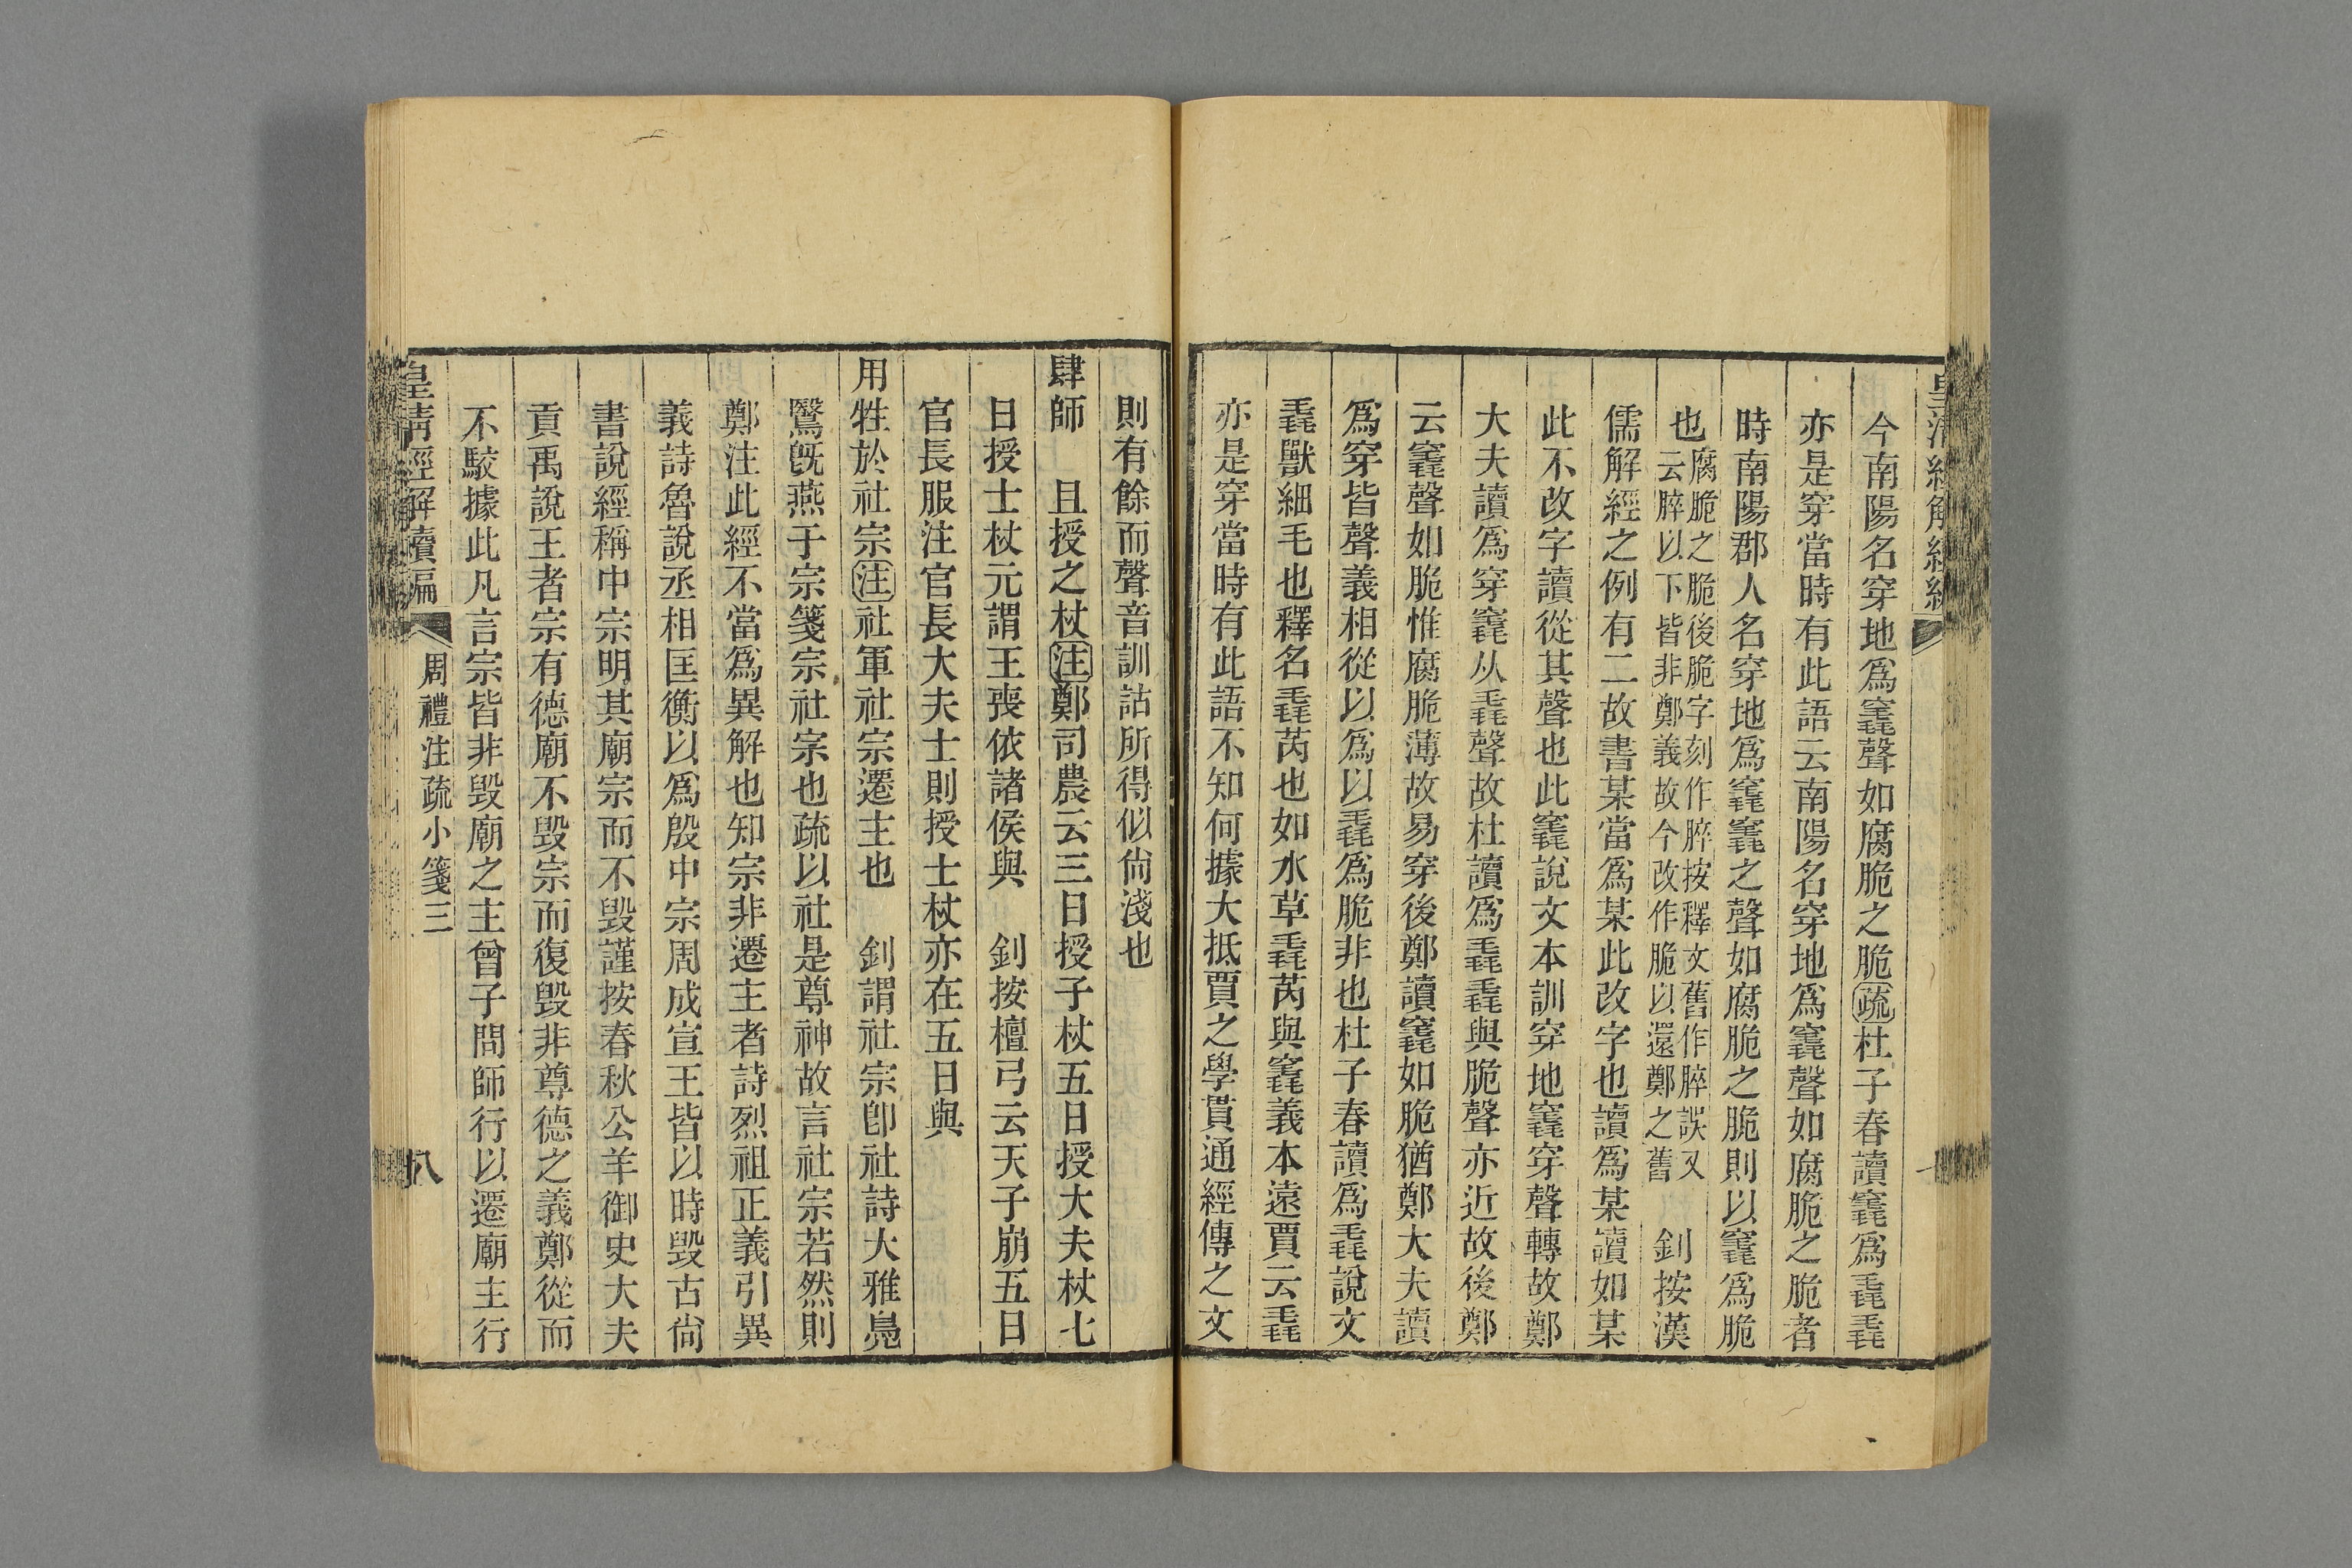 今南陽名穿地爲竁聲如腐脆之脆疏杜子春讀竁爲毳毳
亦是穿當時有此語云南陽名穿地爲竁聲如腐脆之脆者
時南陽郡人名穿地爲竁竁之聲如腐脆之脆則以竁爲脆
也腐脆之脆後脆字刻作脺按釋文舊作脺誤又云脺以下皆非鄭義故今改作脆以還鄭之舊 釗按漢
儒解經之例有二故書某當爲某此改字也讀爲某讀如某
此不改字讀從其聲也此竁說文本訓穿地竁穿聲轉故鄭
大夫讀爲穿竁从毳聲故杜讀爲毳毳與脆聲亦近故後鄭
云竁聲如脆惟腐脆薄故易穿後鄭讀竁如脆猶鄭大夫讀
爲穿皆聲義相從以爲以毳爲脆非也杜子春讀爲毳說文
毳獸細毛也釋名毳芮也如水草毳芮與竁義本遠賈云毳
亦是穿當時有此語不知何據大抵賈之學貫通經傳之文
則有餘而聲音訓詁所得似尙淺也
肆師 且授之杖注鄭司農云三日授子杖五日授大夫杖七
日授士杖元謂王喪依諸侯與 釗按檀弓云天子崩五日
官長服注官長大夫士則授士杖亦在五日與
用牲於社宗注社軍社宗遷主也 釗謂社宗卽社詩大雅鳧
鷖旣燕于宗箋宗社宗也疏以社是尊神故言社宗若然則
鄭注此經不當爲異解也知宗非遷主者詩烈祖正義引異
義詩魯說丞相匡衡以爲殷中宗周成宣王皆以時毀古尙
書說經稱中宗明其廟宗而不毀謹按春秋公羊御史大夫
貢禹說王者宗有德廟不毀宗而復毀非尊德之義鄭從而
不駮據此凡言宗皆非毀廟之主曾子問師行以遷廟主行
皇淸經解續編 周禮注疏小箋三 八